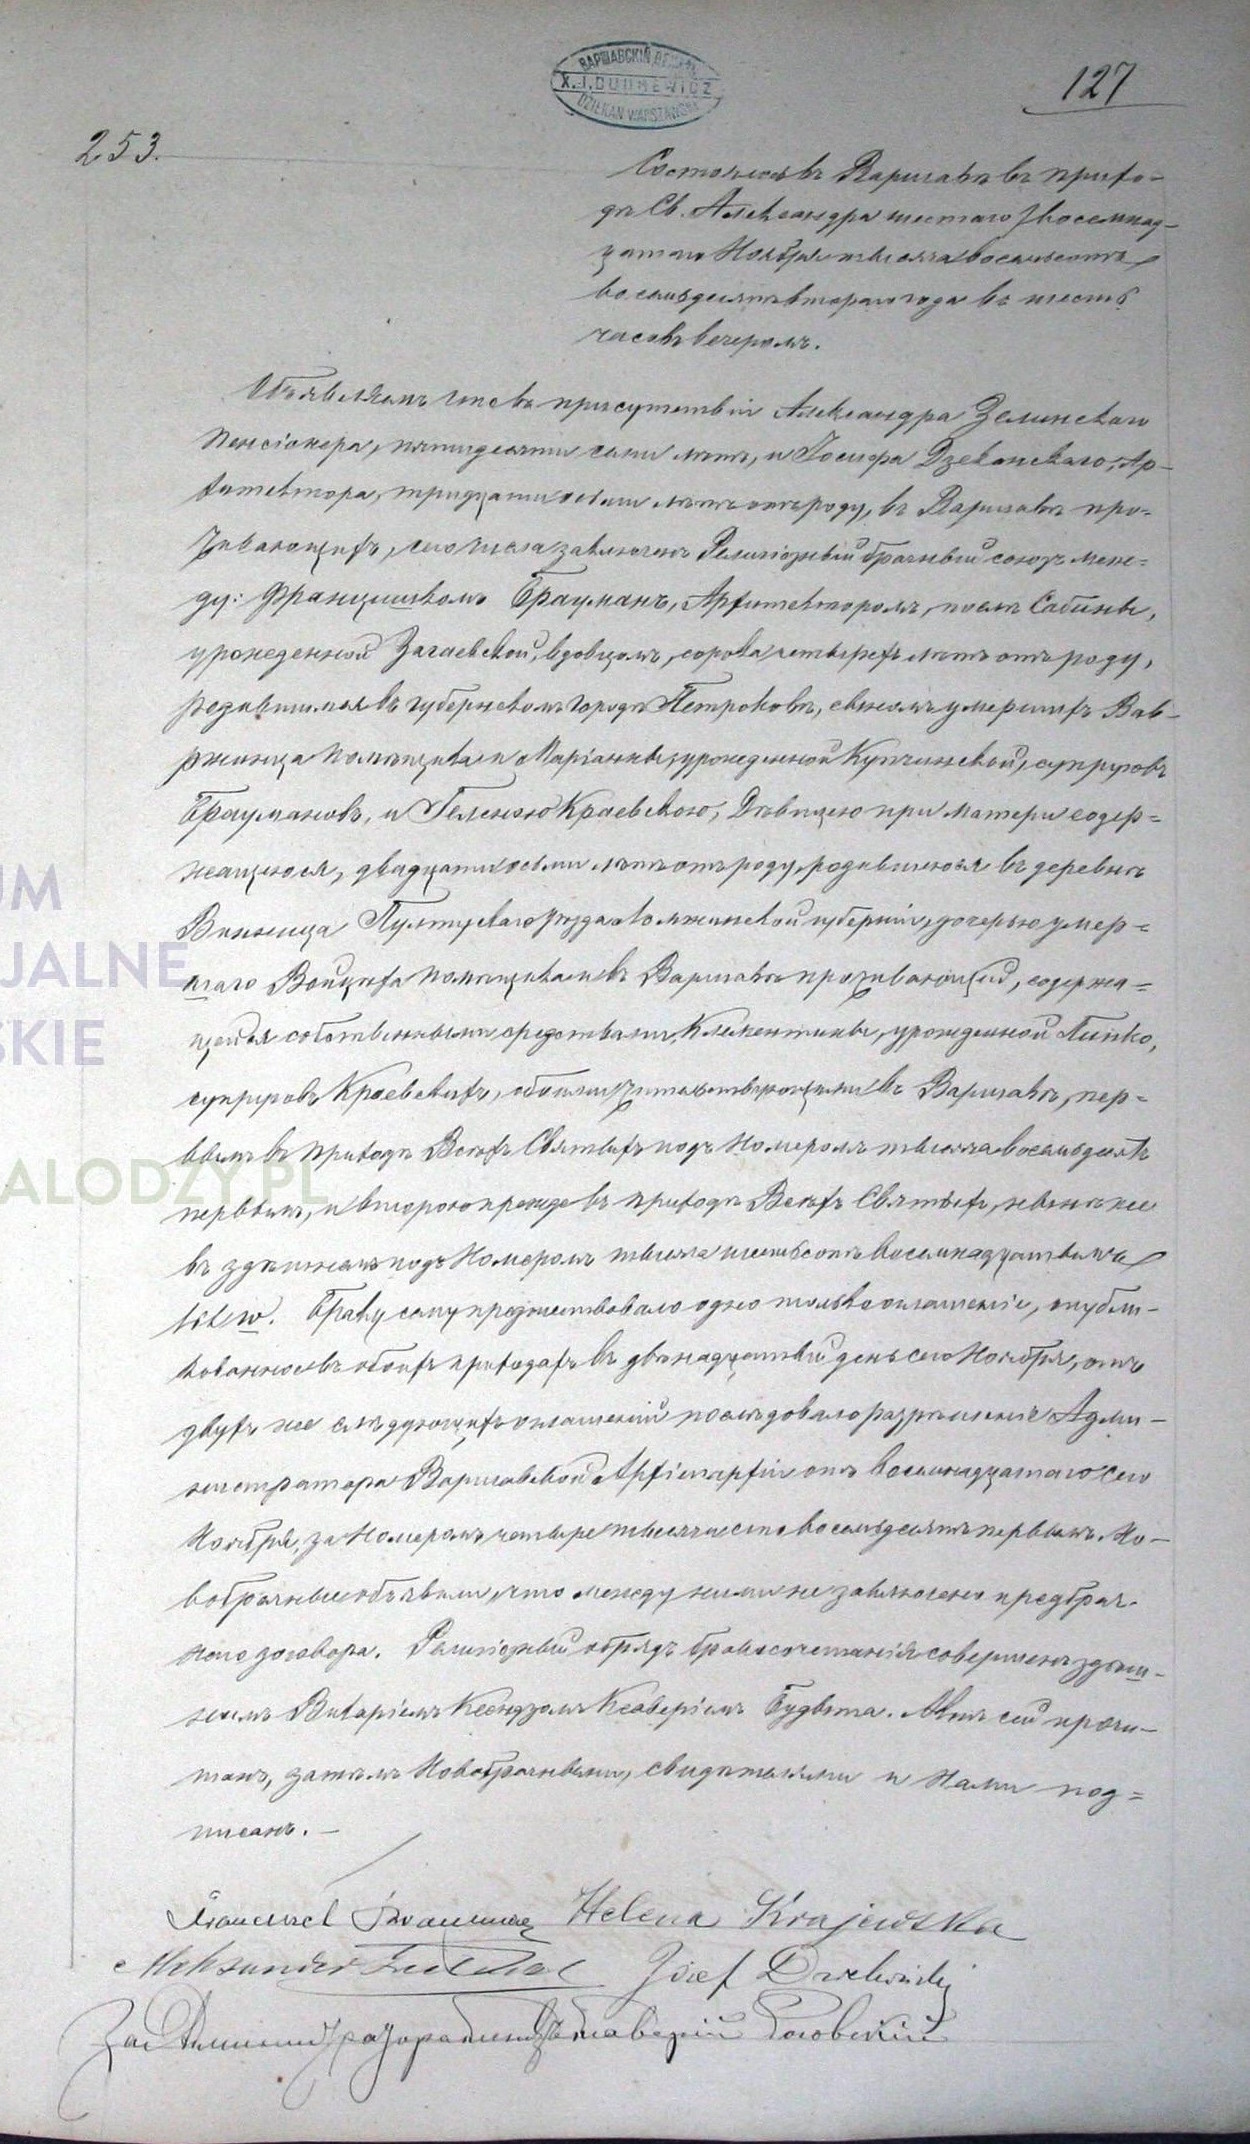 ВАРШАВСКІЙ
X. I. DUDREWICZ
DZIEKAN WARSZAWSKI
127
253.
Состоялось въ Варшавѣ въ прихо-
дѣ Св. Александра шестаго / восемнад-
цатаго Ноября тысяча восемьсотъ
восемьдесятъ втораго года въ шесть
часовъ вечеромъ.
Объявляемъ что въ присутствіи Александра Зелинскаго
Пенсіонера, пятидесяти семи лѣтъ, и Іосифа Дзеконскаго, Ар-
хитектора, тридцати осьми лѣтъ отъ роду, въ Варшавѣ про-
живающихъ, сего числа заключенъ Религіозный брачный союзъ меж-
ду: Францишкомъ Брауманъ, Архитекторомъ, послѣ Сабины,
урожденной Загаевской, вдовцомъ, сорока четырехъ лѣтъ отъ роду,
родившимся въ губернскомъ городѣ Петроковѣ, сыномъ умершихъ Вав-
ржинца Помѣщика и Маріанны урожденной Купчинской, супруговъ
Браумановъ, и Геленою Краевскою, Дѣвицею при матери содер-
жащеюся, двадцати осьми лѣтъ отъ роду, родившеюся въ деревнѣ
Винница Пултускаго уѣзда Ломжинской губерніи, дочерью умер-
шаго Войцѣха Помѣщика и въ Варшавѣ проживающей, содержа-
щейся собственными средствами, Клементины, урожденной Липко,
супруговъ Краевскихъ, обоими жительствующими въ Варшавѣ, пер-
вымъ въ приходѣ Всѣхъ Святыхъ подъ Номеромъ тысяча восемьдесятъ
первымъ, и второю прежде въ приходѣ Всѣхъ Святыхъ, нынѣ же
въ здѣшнемъ подъ Номеромъ тысяча шестьсотъ восемнадцатымъ
lit w. Браку сему предшествовало одно только оглашеніе, опубли-
кованное въ обоихъ приходахъ въ двѣнадцатый день сего Ноября, отъ
двухъ же слѣдующихъ оглашеній послѣдовало разрѣшеніе Адми-
нистратора Варшавской Архіепархіи отъ восемнадцатаго сего
Ноября, за Номеромъ четыре тысячи сто восемьдесятъ первымъ. Но-
вобрачные объявили, что между ними не заключено предбрач-
наго договора. Религіозный обрядъ бракосочетанія совершенъ здѣш-
нимъ Викаріемъ Ксендзомъ Ксаверіемъ Будвыта. Актъ сей прочи-
танъ, затѣмъ Новобрачными, свидѣтелями и Нами под-
писанъ. —
Franciszek Brauman Helena Krajewska
Aleksander Zieliński Józef Dziekoński
За Администратора Ксаверій